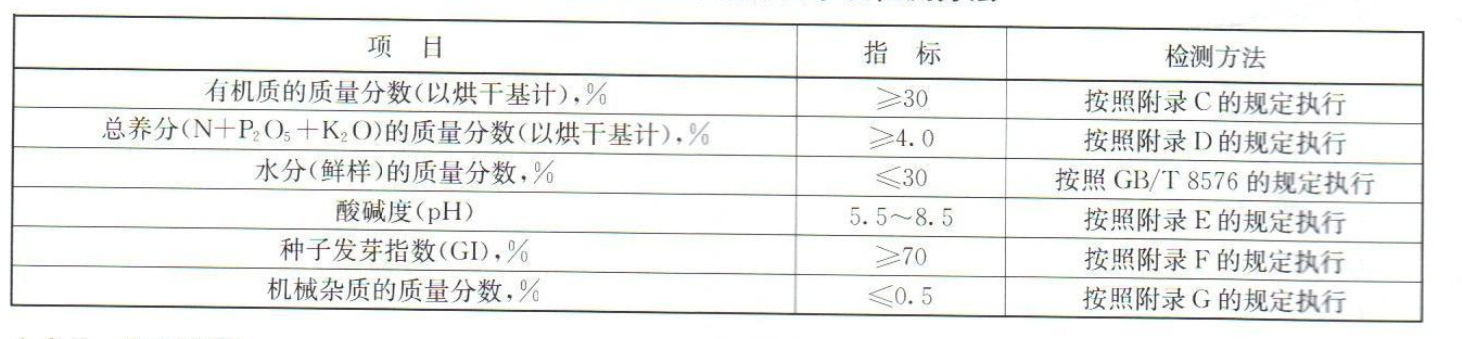 项 目 指 标 检测方法
有机质的质量分数(以烘干基计),% ≥30 按照附录 C 的规定执行
总养分(N+P₂O₅+K₂O)的质量分数(以烘干基计),% ≥4.0 按照附录 D 的规定执行
水分(鲜样)的质量分数,% ≤30 按照 GB/T 8576 的规定执行
酸碱度(pH) 5.5~8.5 按照附录 E 的规定执行
种子发芽指数(GI),% ≥70 按照附录 F 的规定执行
机械杂质的质量分数,% ≤0.5 按照附录 G 的规定执行